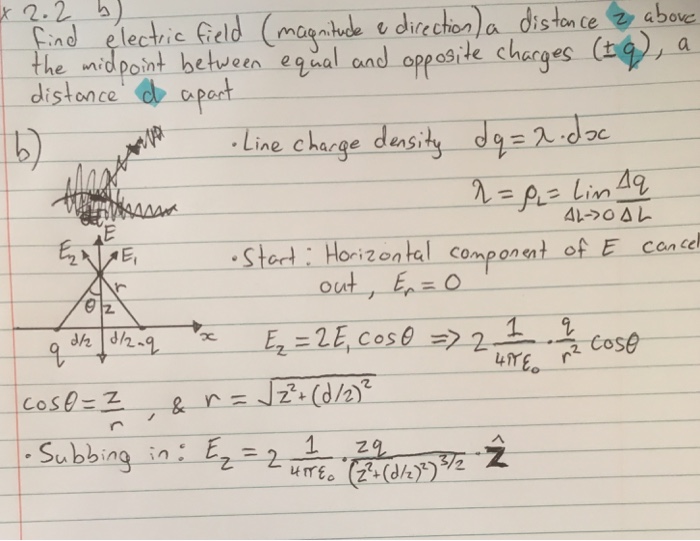 x 2.2 b)
Find electric field (magnitude & direction) a distance z above
the midpoint between equal and opposite charges (±q), a
distance d apart
b)
• Line charge density dq = λ · dx
λ = ρL = Lim Δq/ΔL
ΔL→0
E
E2 E1
r
θ z
d/2 d/2 -q x
q
• Start: Horizontal component of E cancel
out, Er = 0
Ez = 2E1 cosθ ⇒ 2 1/4πε0 · q/r² cosθ
cosθ = z/r , & r = √z² + (d/2)²
• Subbing in: Ez = 2 1/4πε0 · zq/(z² + (d/2)²)^3/2 · ẑ